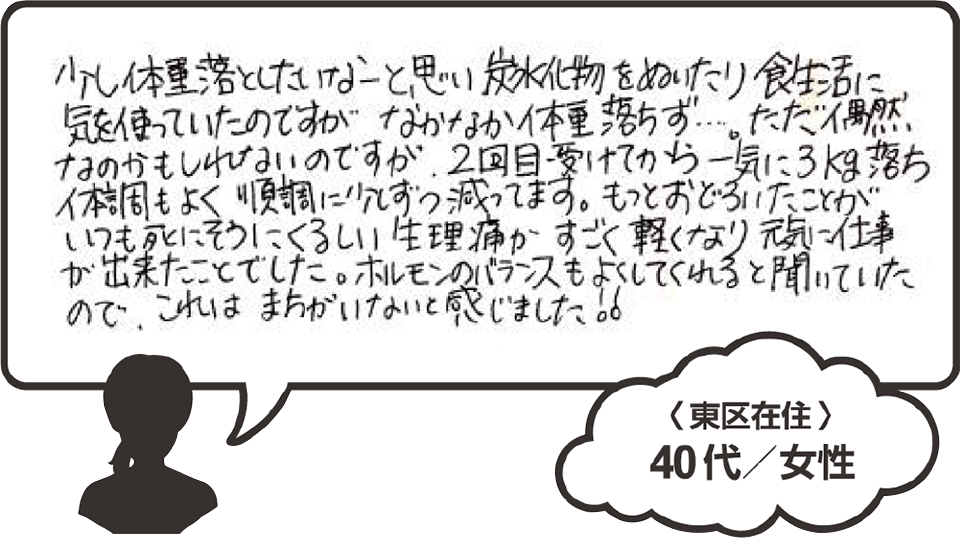 少し体重落としたいなーと思い 炭水化物をぬいたり 食生活に
気を使っていたのですが なかなか体重落ちず…。ただ、偶然
なのかもしれないのですが、2回目受けてから 一気に3kg落ち
体調もよく 順調に少しずつ減ってます。もっとおどろいたことが
いつも死にそうにくるしい 生理痛が すごく軽くなり 元気に仕事
が出来たことでした。ホルモンのバランスもよくしてくれると聞いていた
ので、これは まちがいないと感じました!!
〈東区在住〉
40代／女性